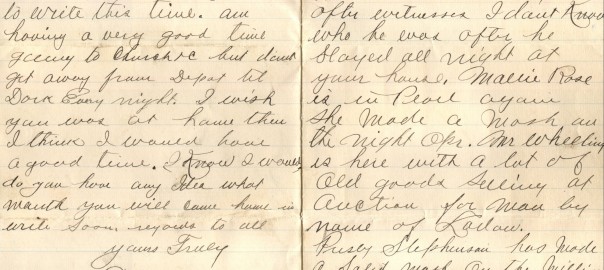 to write this time. am
having a very good time
going to Church &c but dont
get away from Depot til
Dark Evry night. I wish
you was at home then
I think I would have
a good time. I Know I would,
do you have any Idea what
month you will come home in
write soon. regards to all
yours Truly
after witnesses I dont Know
who he was after he
Stayed all night at
your house. Mallie Rose
is in Pearl again
She made a Mash on
the night Opr. Mr Wheeling
is here with a lot of
Old goods Selling at
Auction for Man by
name of Ladow.
Stephenson has made
a Mash on the